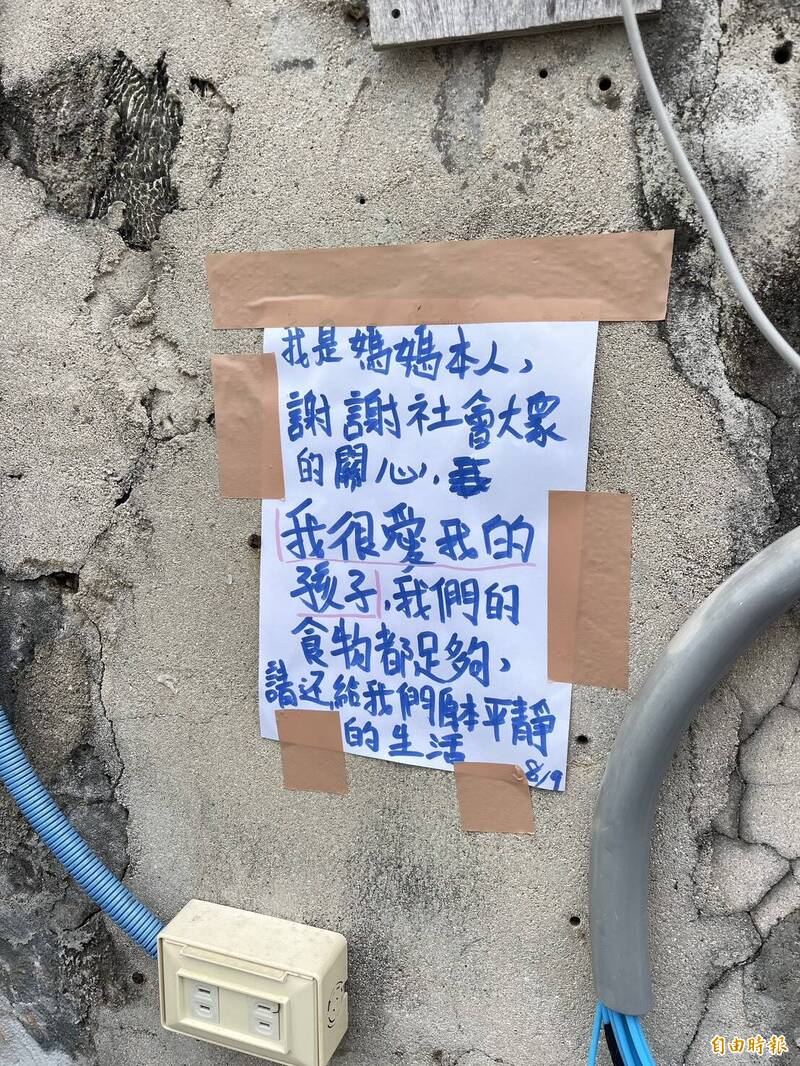 我是媽媽本人，
謝謝社會大眾
的關心，
我很愛我的
孩子，我們的
食物都足夠，
請还給我們原本平靜
的生活
8/9
自由時報